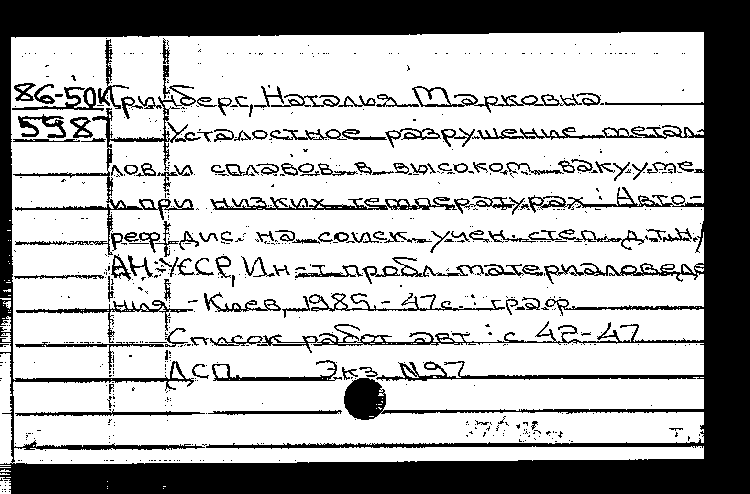 86-50К Гринберг, Наталья Марковна
5987 Усталостное разрушение метал-
лов и сплавов в высоком вакууме
и при низких температурах : Авто-
реф. дис. на соиск. учен. степ. д.т.н./
АН УССР, Ин-т пробл. материаловеде
ния. - Киев, 1985. - 47с. : граф.
Список работ авт : с 42-47
ДСП. Экз. N97